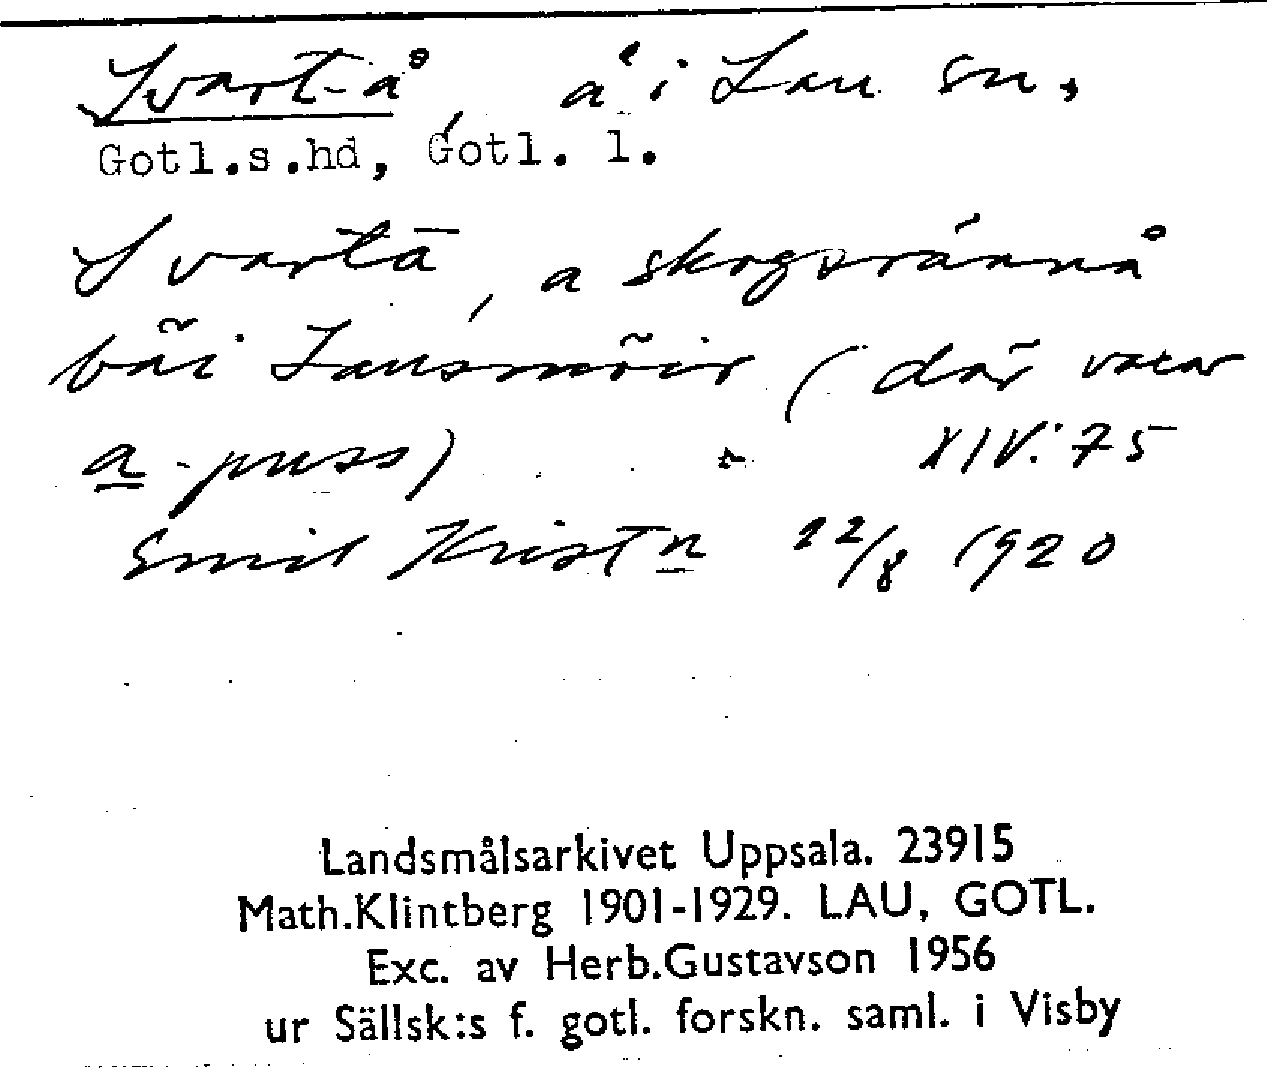 Svart-å, å i Lau sn,
Gotl.s.hd, Gotl. l.
Svartā, a skogsrännå
bäi Lausmõir (där vaar
a puss) XIV:75
Emil Kristn 22/8 1920
Landsmålsarkivet Uppsala. 23915
Math.Klintberg 1901-1929. LAU, GOTL.
Exc. av Herb.Gustavson 1956
ur Sällsk:s f. gotl. forskn. saml. i Visby